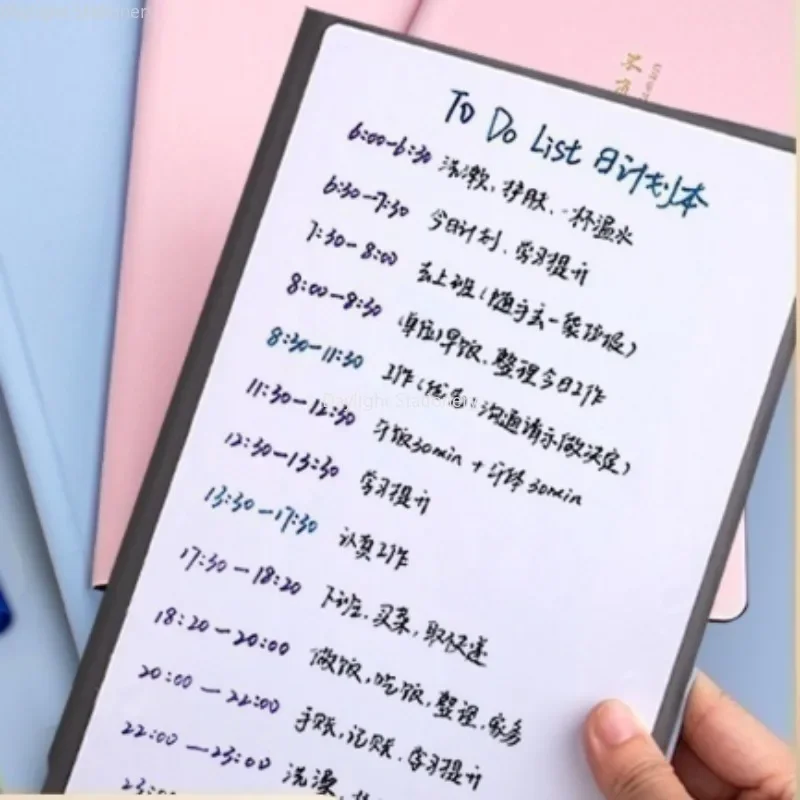 To Do List 日计划本
6:00-6:30 洗漱、护肤、一杯温水
6:30-7:30 今日计划、学习提升
7:30-8:00 去上班(随手丢一袋垃圾)
8:00-8:30 (单位)早饭、整理今日工作
8:30-11:30 工作(优先:沟通请示做决定)
11:30-12:30 午饭30min + 午休30min
12:30-13:30 学习提升
13:30-17:30 认真工作
17:30-18:20 下班、买菜、取快递
18:20-20:00 做饭、吃饭、整理、家务
20:00-22:00 手账、记账、学习提升
22:00-23:00 洗漫、
23:00
Daylight Stationery